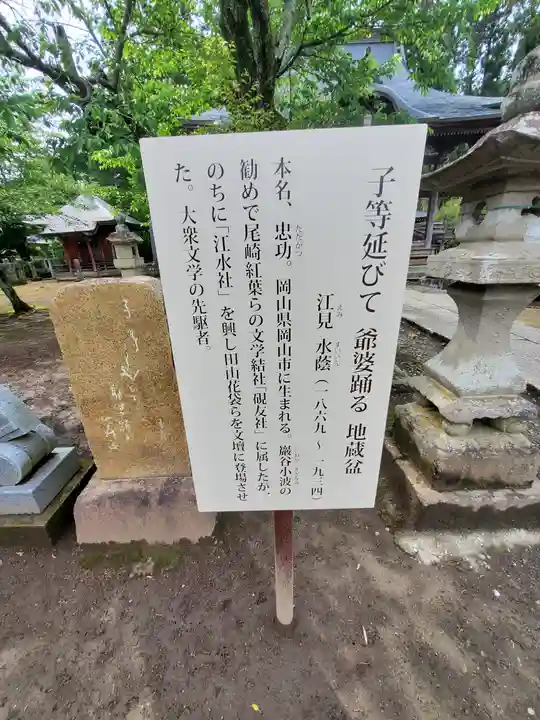 子等延びて 爺婆踊る 地蔵盆
江見 水蔭（一八六九～一九三四）
えみ すいいん
本名、忠功。岡山県岡山市に生まれる。巖谷小波の
ただかつ
いわやさざなみ
勧めで尾崎紅葉らの文学結社「硯友社」に属したが、
のちに「江水社」を興し田山花袋らを文壇に登場させ
た。大衆文学の先駆者。